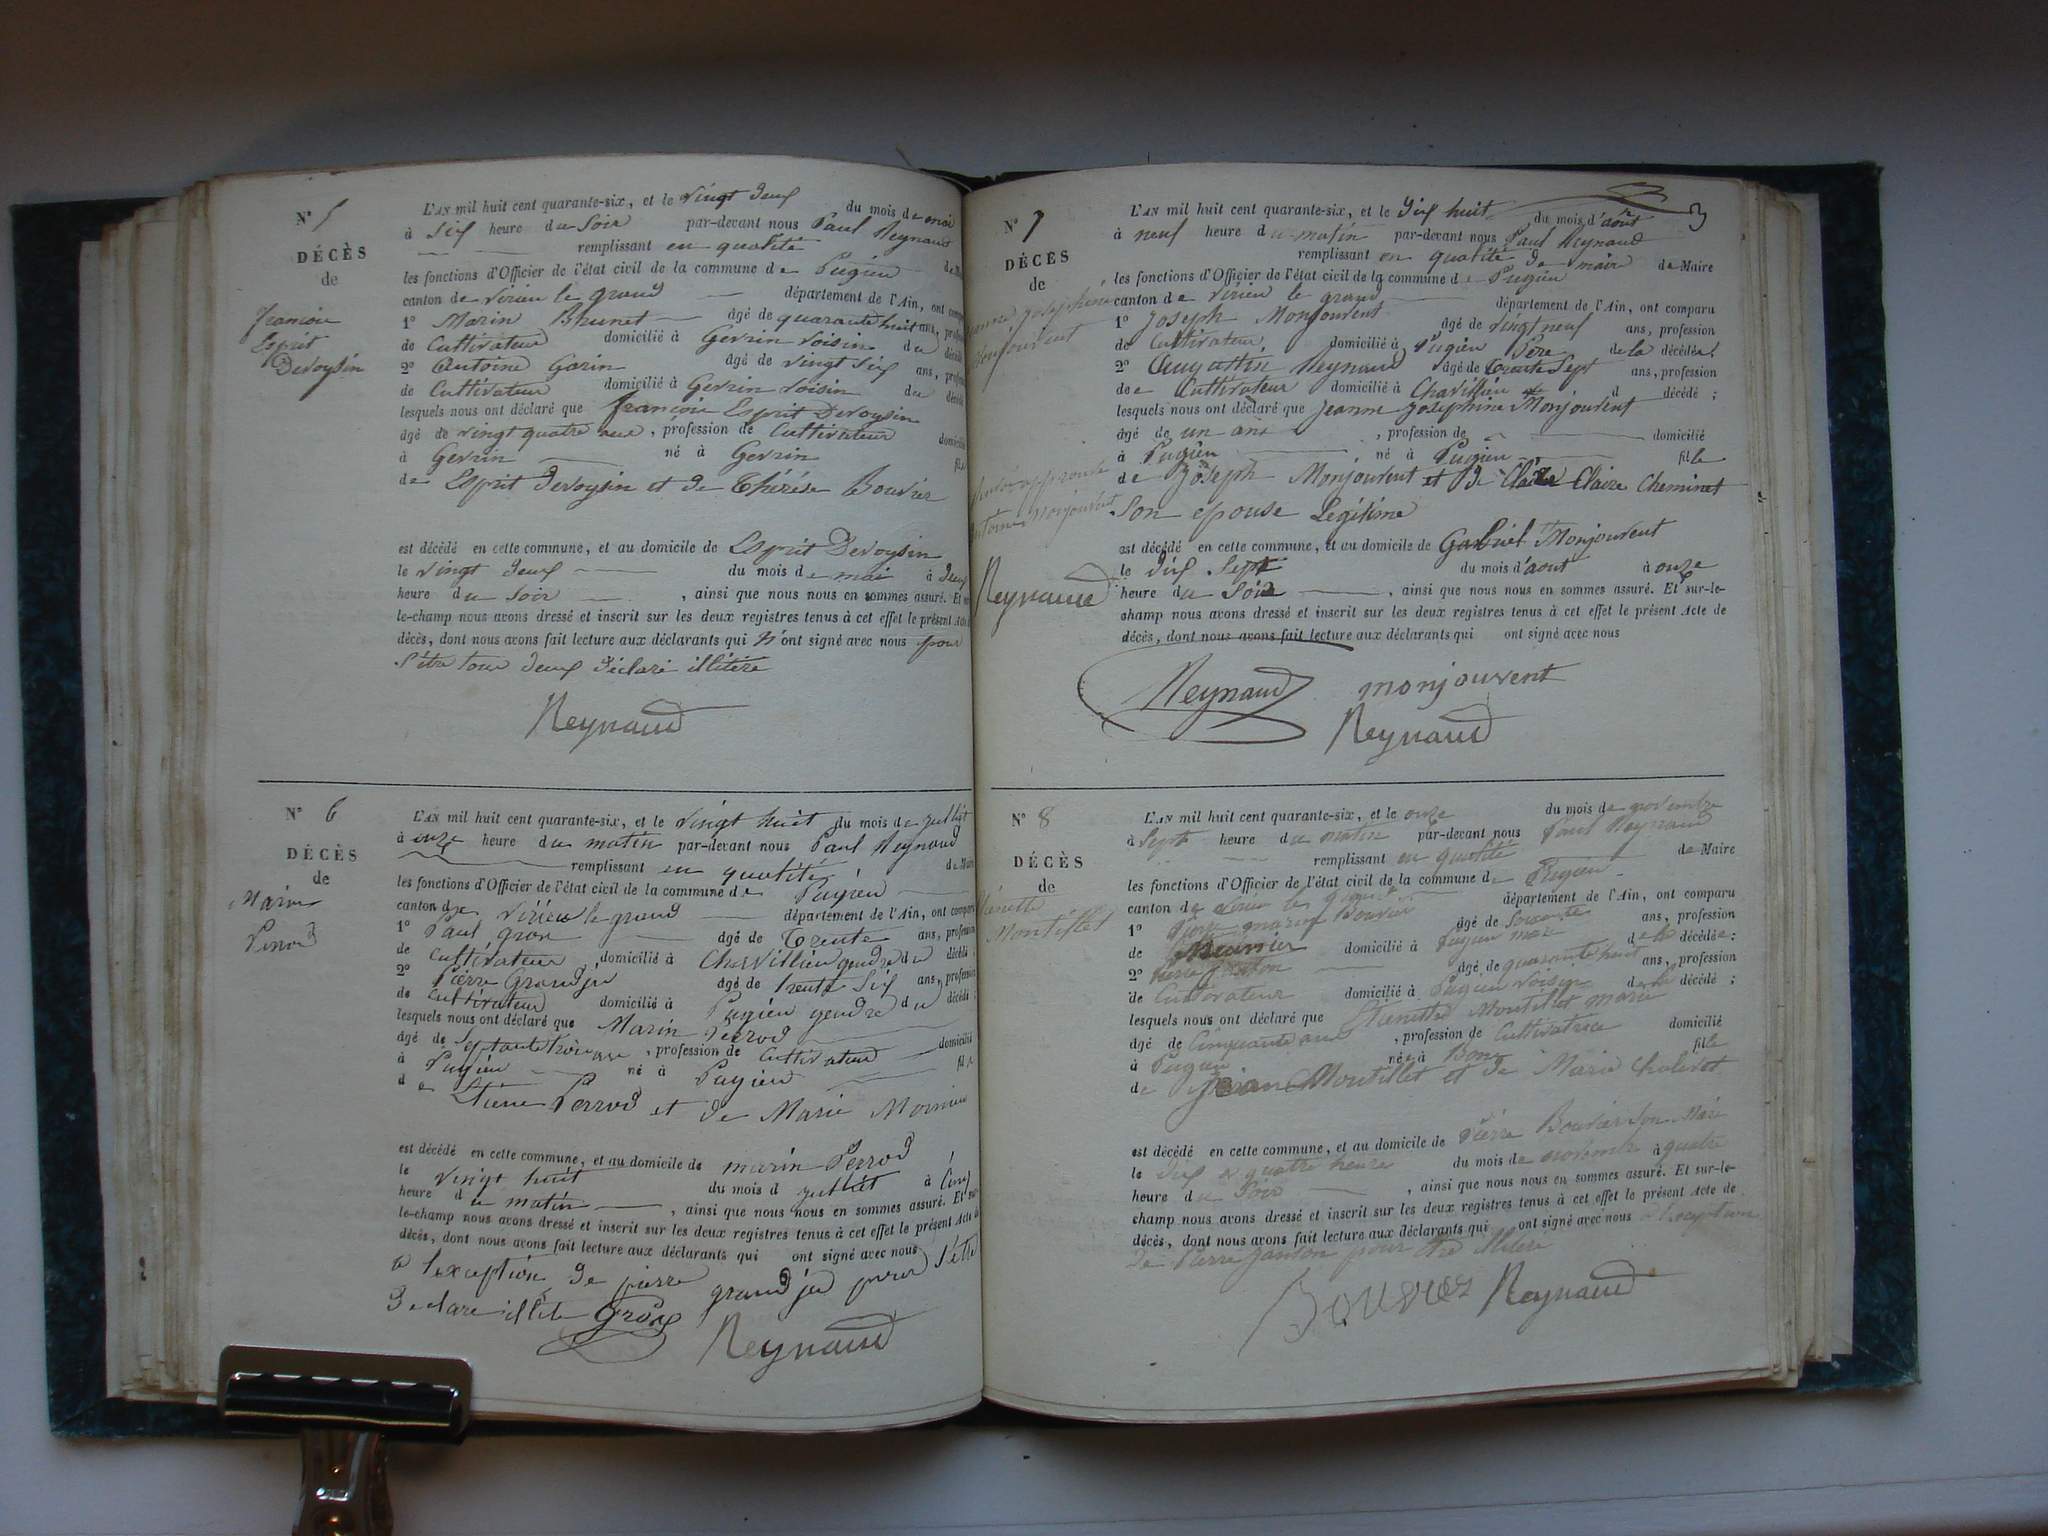 N° 5
DÉCÈS
de
françois
Esprit
Devoysin
L'AN mil huit cent quarante-six, et le vingt deux du mois de mai
à Six heure du Soir par-devant nous Paul Reynaud
remplissant en qualité de Maire
les fonctions d'Officier de l'état civil de la commune de Pugieu
canton de virieu le grand département de l'Ain, ont comparu
1° Marin Brunet âgé de quarante huit ans, profession
de Cultivateur domicilié à Gevrin voisin du décédé
2° Antoine Gorin âgé de vingt Six ans, profession
de Cultivateur domicilié à Gevrin voisin du décédé
lesquels nous ont déclaré que françois Esprit Devoysin
âgé de vingt quatre ans, profession de Cultivateur domicilié
à Gevrin né à Gevrin fils
de Esprit Devoysin et de Thérèse Bouvier
est décédé en cette commune, et au domicile de Esprit Devoysin
le vingt deux du mois de mai à deux
heure du Soir, ainsi que nous nous en sommes assuré. Et sur-
le-champ nous avons dressé et inscrit sur les deux registres tenus à cet effet le présent Acte de
décès, dont nous avons fait lecture aux déclarants qui n'ont signé avec nous pour
s'être tous deux déclaré illitère
Reynaud
N° 6
DÉCÈS
de
Marin
Perrod
L'AN mil huit cent quarante-six, et le vingt huit du mois de juillet
à onze heure du matin par-devant nous Paul Reynaud
remplissant en qualité de Maire
les fonctions d'Officier de l'état civil de la commune de Pugieu
canton de virieu le grand département de l'Ain, ont comparu
1° Paul gros âgé de trente ans, profession
de cultivateur domicilié à Chavillieu gendre du décédé
2° Pierre Grandjé âgé de trente Six ans, profession
de cultivateur domicilié à Pugieu gendre du décédé ;
lesquels nous ont déclaré que Marin Perrod
âgé de septante trois ans, profession de Cultivateur domicilié
à Pugieu né à Pugieu fils
de Etiene Perrod et de Marie
est décédé en cette commune, et au domicile de marin Perrod
le vingt huit du mois d juillet à Cinq
heure du matin, ainsi que nous nous en sommes assuré. Et sur-
le-champ nous avons dressé et inscrit sur les deux registres tenus à cet effet le présent Acte de
décès, dont nous avons fait lecture aux déclarants qui ont signé avec nous
a lexception de pierre grandjé pour S'être
declare Gros
Reynaud
3
N° 7
DÉCÈS
de
Jeanne Josephine
Monjouvent
L'AN mil huit cent quarante-six, et le dix huit du mois d'août
à neuf heure du matin par-devant nous Paul Reynaud
remplissant en qualité de maire de Maire
les fonctions d'Officier de l'état civil de la commune de Pugieu
canton de virieu le grand département de l'Ain, ont comparu
1° Joseph Monjouvent âgé de vingt neuf ans, profession
de Cultivateur domicilié à Pugieu Père de la décédée ;
2° Reynaud âgé de trente Sept ans, profession
de Cultivateur domicilié à Chavillieu d décédé ;
lesquels nous ont déclaré que Jeanne Josephine Monjouvent
âgé de un ans, profession de domicilié
à Pugieu né à Pugieu fille
de Joseph Monjouvent et de Claire Cheminet
Son epouse Légitime
est décédé en cette commune, et au domicile de Gabriel Monjouvent
le dix Sept du mois d'aout à onze
heure du Soir, ainsi que nous nous en sommes assuré. Et sur-le-
champ nous avons dressé et inscrit sur les deux registres tenus à cet effet le présent Acte de
décès, dont nous avons fait lecture aux déclarants qui ont signé avec nous
Reynaud
Reynaud monjouvent
Reynaud
N° 8
DÉCÈS
de
Etienette
Montillet
L'AN mil huit cent quarante-six, et le onze du mois de novembre
à Sept heure du matin par-devant nous Paul Reynaud
remplissant en qualité de Maire
les fonctions d'Officier de l'état civil de la commune de Pugieu
canton de virieu le grand département de l'Ain, ont comparu
1° Pierre marin Bouvier âgé de Soixante ans, profession
de Meunier domicilié à Pugieu mari de la décédée ;
2° Pierre Janton âgé de quarante huit ans, profession
de Cultivateur domicilié à Pugieu voisin de la décédé ;
lesquels nous ont déclaré que Etienette Montillet marié
âgé de Cinquante ans, profession de Cultivatrice domicilié
à Pugieu née à Bons fille
de Jean Montillet et de Marie
est décédé en cette commune, et au domicile de Pierre Bouvier Son Mari
le dix a quatre heure du mois de novembre à quatre
heure du Soir, ainsi que nous nous en sommes assuré. Et sur-le-
champ nous avons dressé et inscrit sur les deux registres tenus à cet effet le présent Acte de
décès, dont nous avons fait lecture aux déclarants qui ont signé avec nous a l'exception
de Pierre Janton pour être illiteré
Bouvier Reynaud